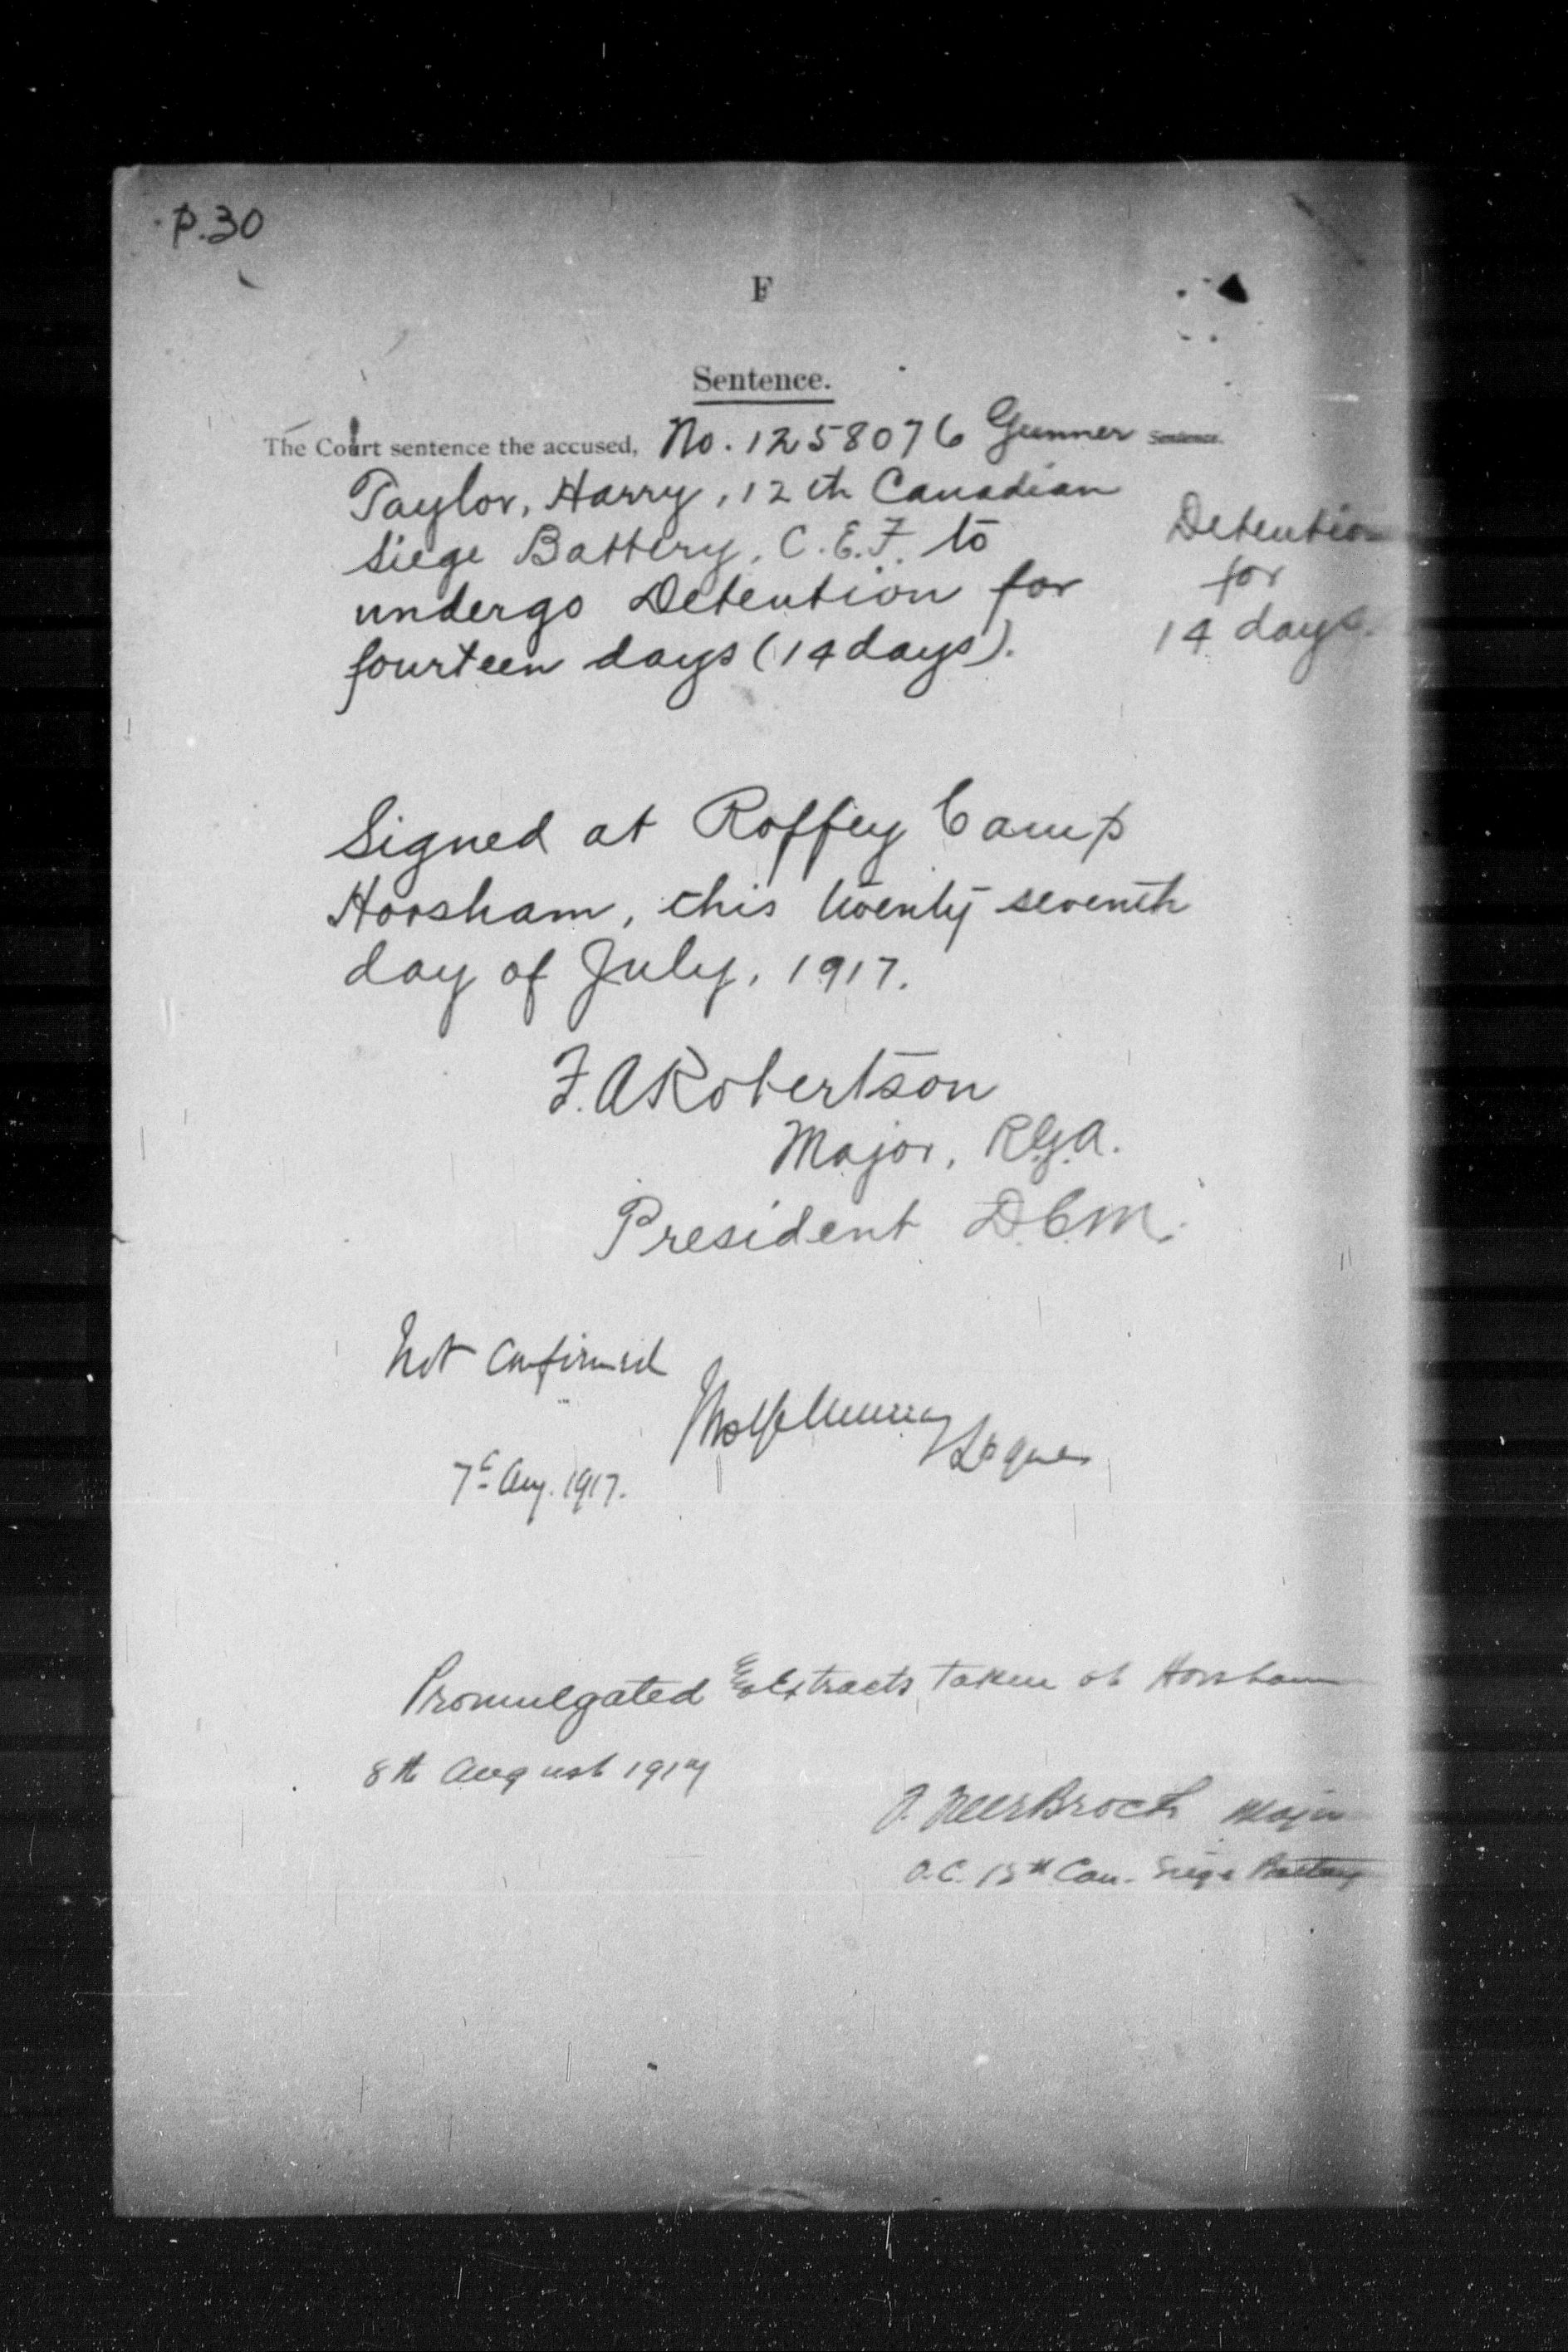 P.30
F
Sentence.
The Court sentence the accused, No. 1258076 Gunner
Sentence.
Taylor, Harry, 12th Canadian
Siege Battery, C.E.F. to
undergo Detention for
fourteen days (14 days).
Detention
for
14 days.
Signed at Roffey Camp
Horsham, this twenty seventh
day of July, 1917.
F. A Robertson
Major, R.G.A.
President D.C.M.
Not Confirmed
7th Aug. 1917.
Promulgated & Extracts taken at Horsham
8th August 1917
Major
O.C. 12th Can. Siege Battery